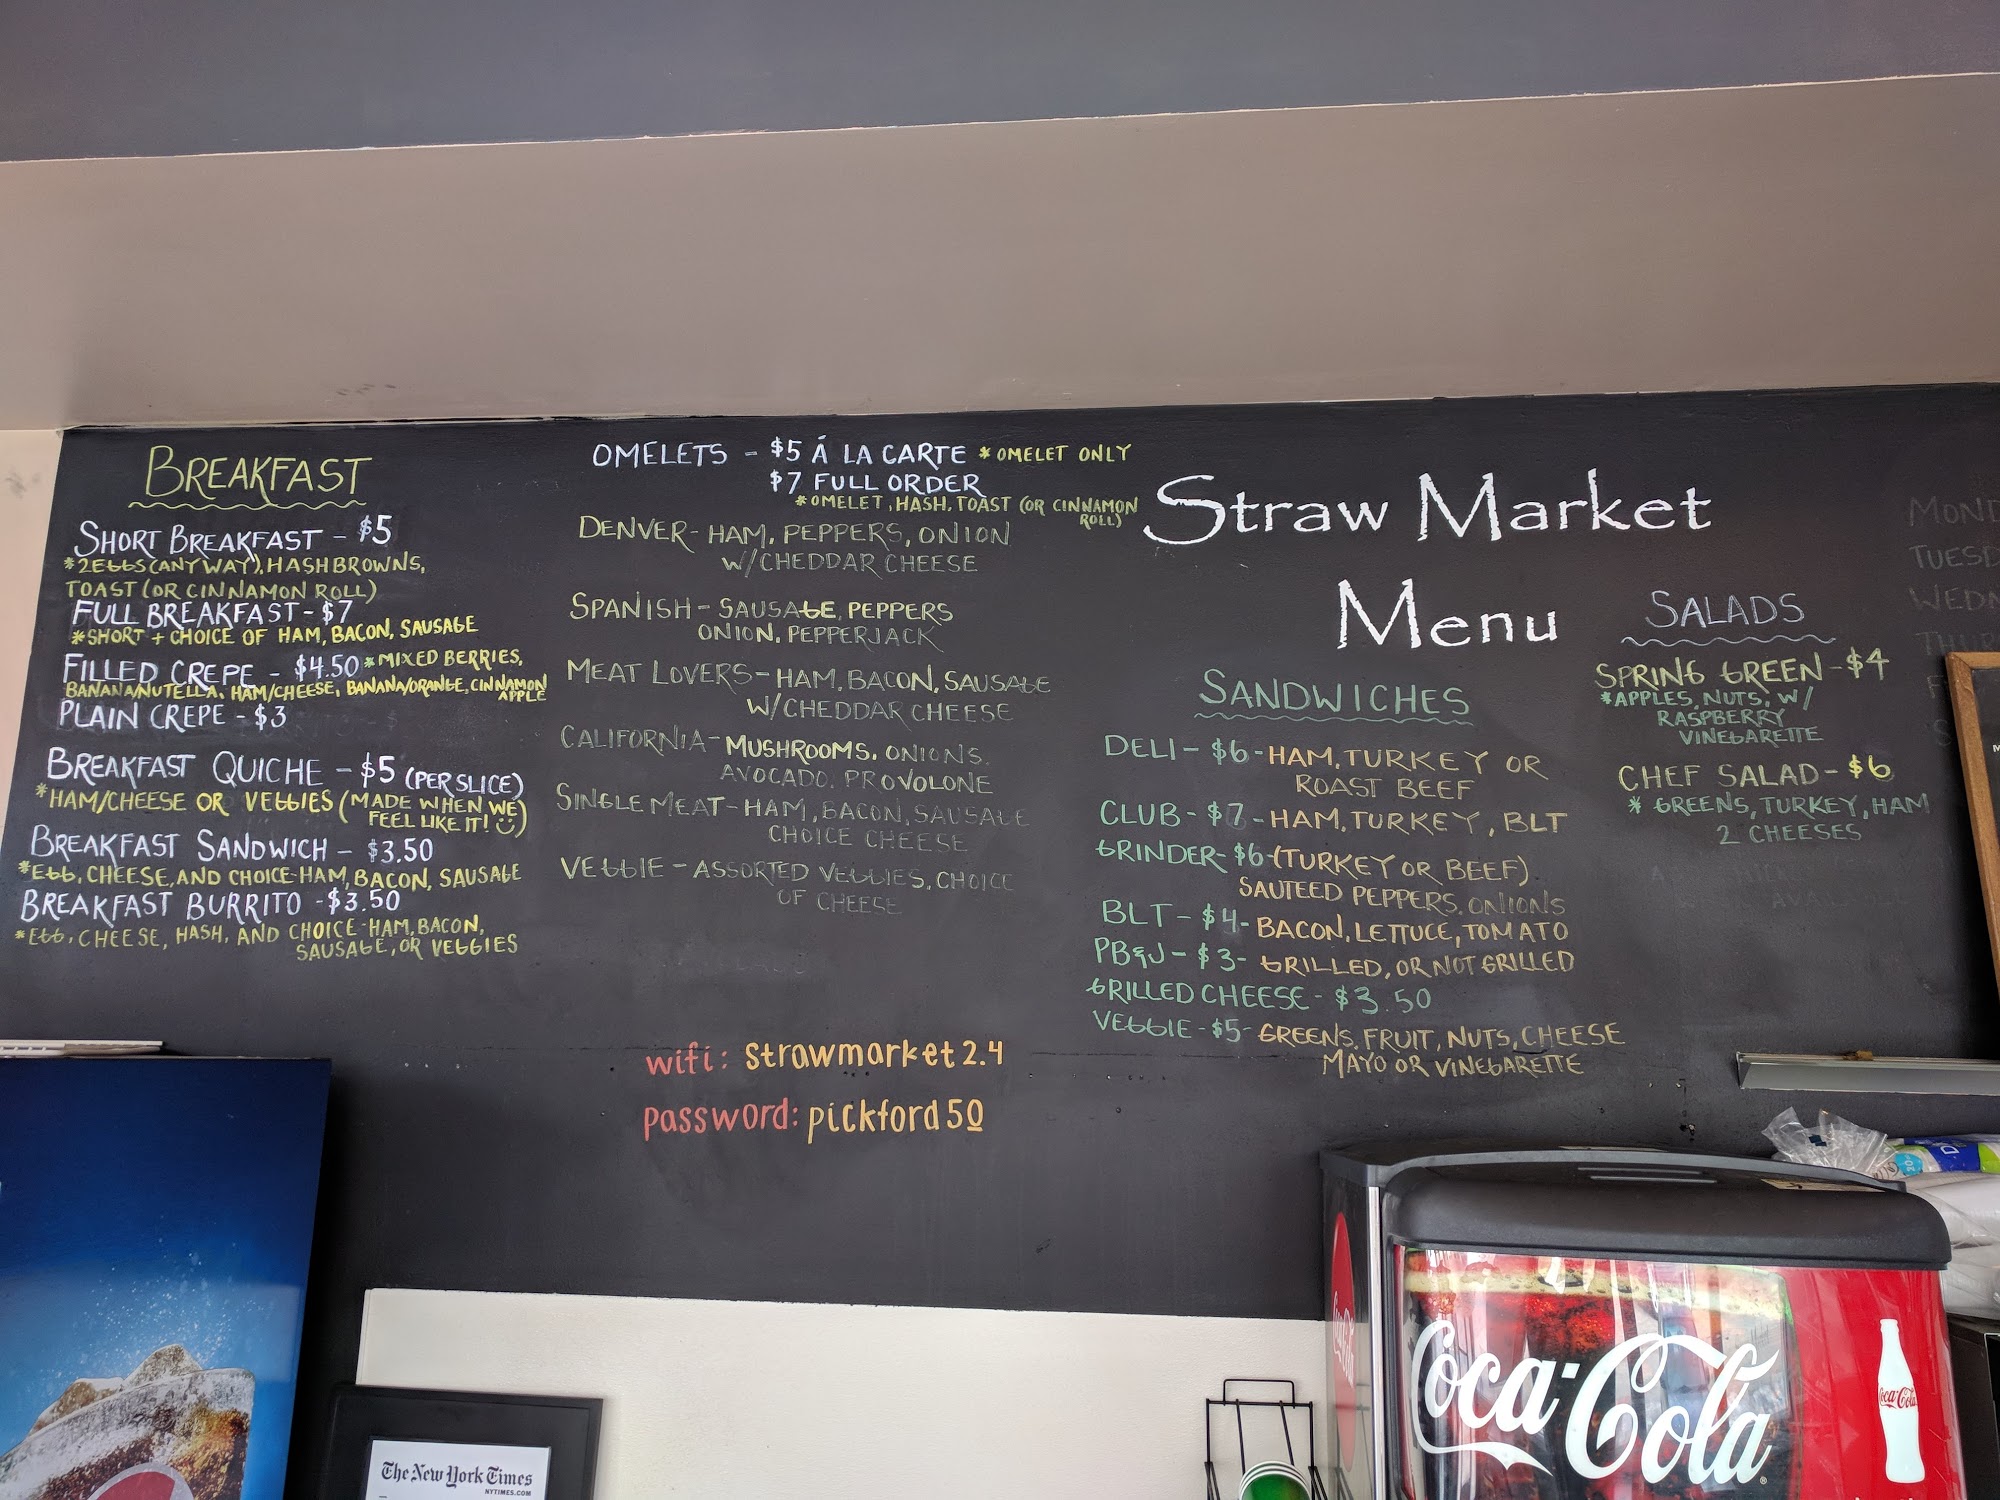 BREAKFAST
SHORT BREAKFAST - $5
*2EGGS (ANYWAY), HASHBROWNS,
TOAST (OR CINNAMON ROLL)
FULL BREAKFAST - $7
*SHORT + CHOICE OF HAM, BACON, SAUSAGE
FILLED CREPE - $4.50 *MIXED BERRIES,
BANANA/NUTELLA, HAM/CHEESE, BANANA/ORANGE, CINNAMON
APPLE
PLAIN CREPE - $3
BREAKFAST QUICHE - $5 (PER SLICE)
*HAM/CHEESE OR VEGGIES (MADE WHEN WE
FEEL LIKE IT! )
BREAKFAST SANDWICH - $3.50
*EGG, CHEESE, AND CHOICE-HAM, BACON, SAUSAGE
BREAKFAST BURRITO - $3.50
*EGG, CHEESE, HASH, AND CHOICE-HAM, BACON,
SAUSAGE, OR VEGGIES
OMELETS - $5 Á LA CARTE *OMELET ONLY
$7 FULL ORDER
*OMELET, HASH, TOAST (OR CINNAMON
ROLL)
DENVER - HAM, PEPPERS, ONION
W/CHEDDAR CHEESE
SPANISH - SAUSAGE, PEPPERS
ONION, PEPPERJACK
MEAT LOVERS - HAM, BACON, SAUSAGE
W/CHEDDAR CHEESE
CALIFORNIA - MUSHROOMS, ONIONS,
AVOCADO, PROVOLONE
SINGLE MEAT - HAM, BACON, SAUSAGE
CHOICE CHEESE
VEGGIE - ASSORTED VEGGIES, CHOICE
OF CHEESE
wifi: strawmarket2.4
password: pickford50
Straw Market
Menu
SANDWICHES
DELI - $6 - HAM, TURKEY OR
ROAST BEEF
CLUB - $7 - HAM, TURKEY, BLT
GRINDER - $6 - (TURKEY OR BEEF)
SAUTEED PEPPERS, ONIONS
BLT - $4 - BACON, LETTUCE, TOMATO
PB&J - $3 - GRILLED, OR NOT GRILLED
GRILLED CHEESE - $3.50
VEGGIE - $5 - GREENS, FRUIT, NUTS, CHEESE
MAYO OR VINEGARETTE
SALADS
SPRING GREEN - $4
*APPLES, NUTS, W/
RASPBERRY
VINEGARETTE
CHEF SALAD - $6
* GREENS, TURKEY, HAM
2 CHEESES
MOND
TUESD
WEDN
THUR
The New York Times
NYTIMES.COM
Coca-Cola
Coca-Cola